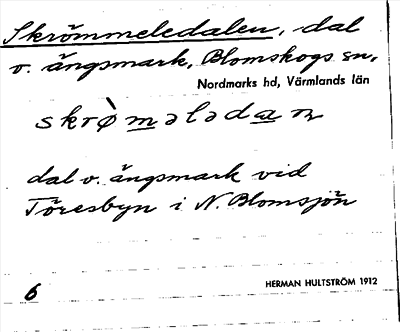 Skrömmeledalen, dal
o. ängsmark, Blomskogs sn,
Nordmarks hd, Värmlands län
skrø̀mələdan
dal o. ängsmark vid
Töresbyn i N. Blomsjön
6
HERMAN HULTSTRÖM 1912